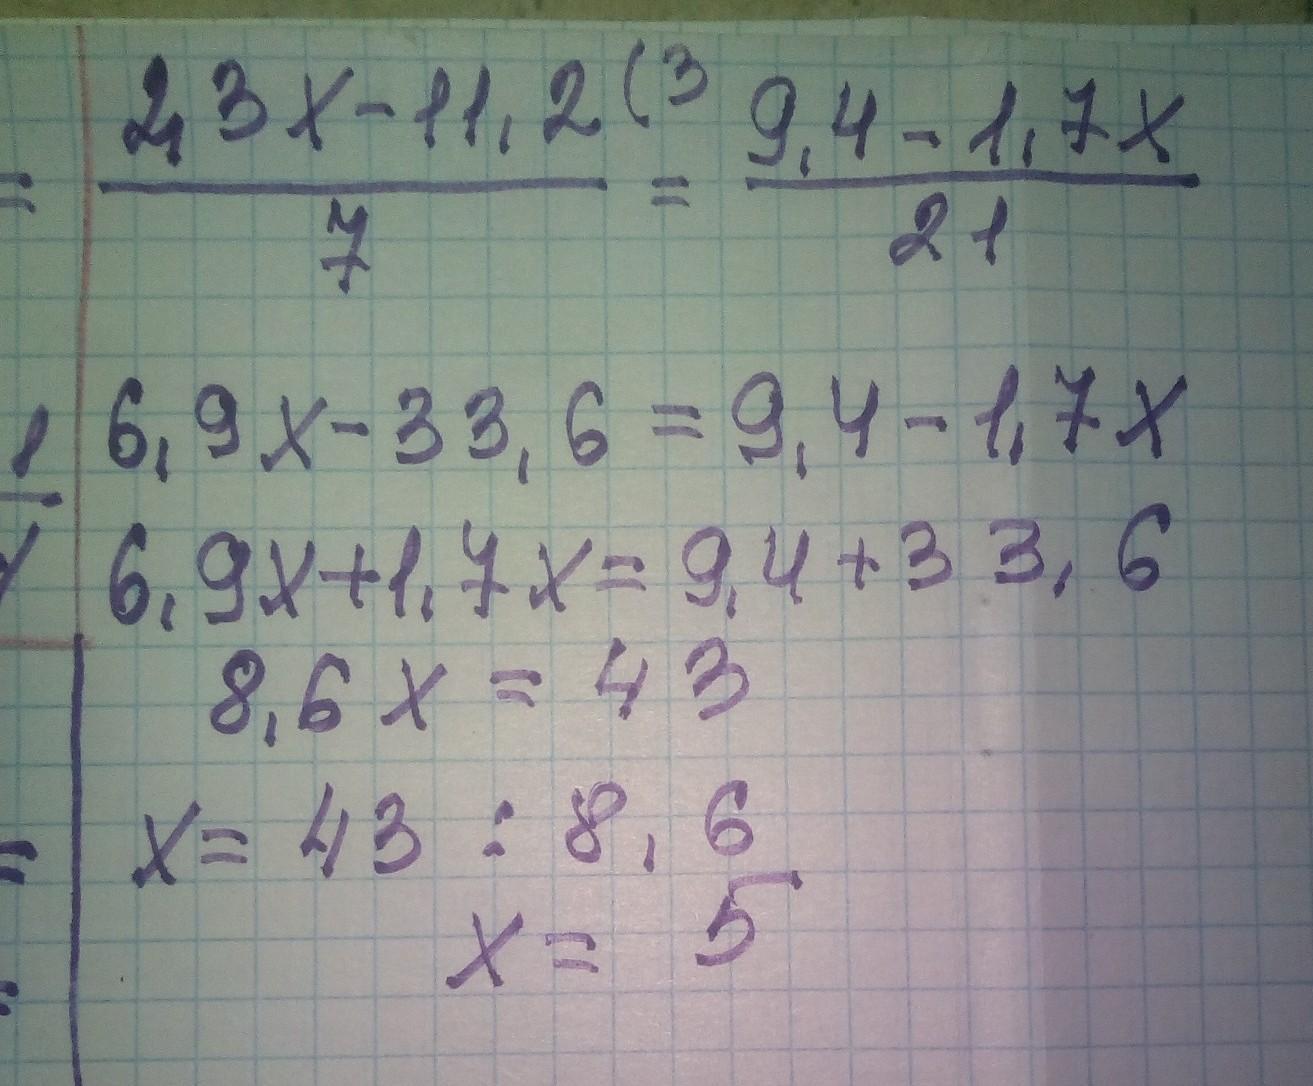 =
2,3x-11,2 (3 = 9,4-1,7x
7 21
1 6,9x-33,6=9,4-1,7x
6,9x+1,7x=9,4+33,6
8,6x=43
= x=43:8,6
x=5